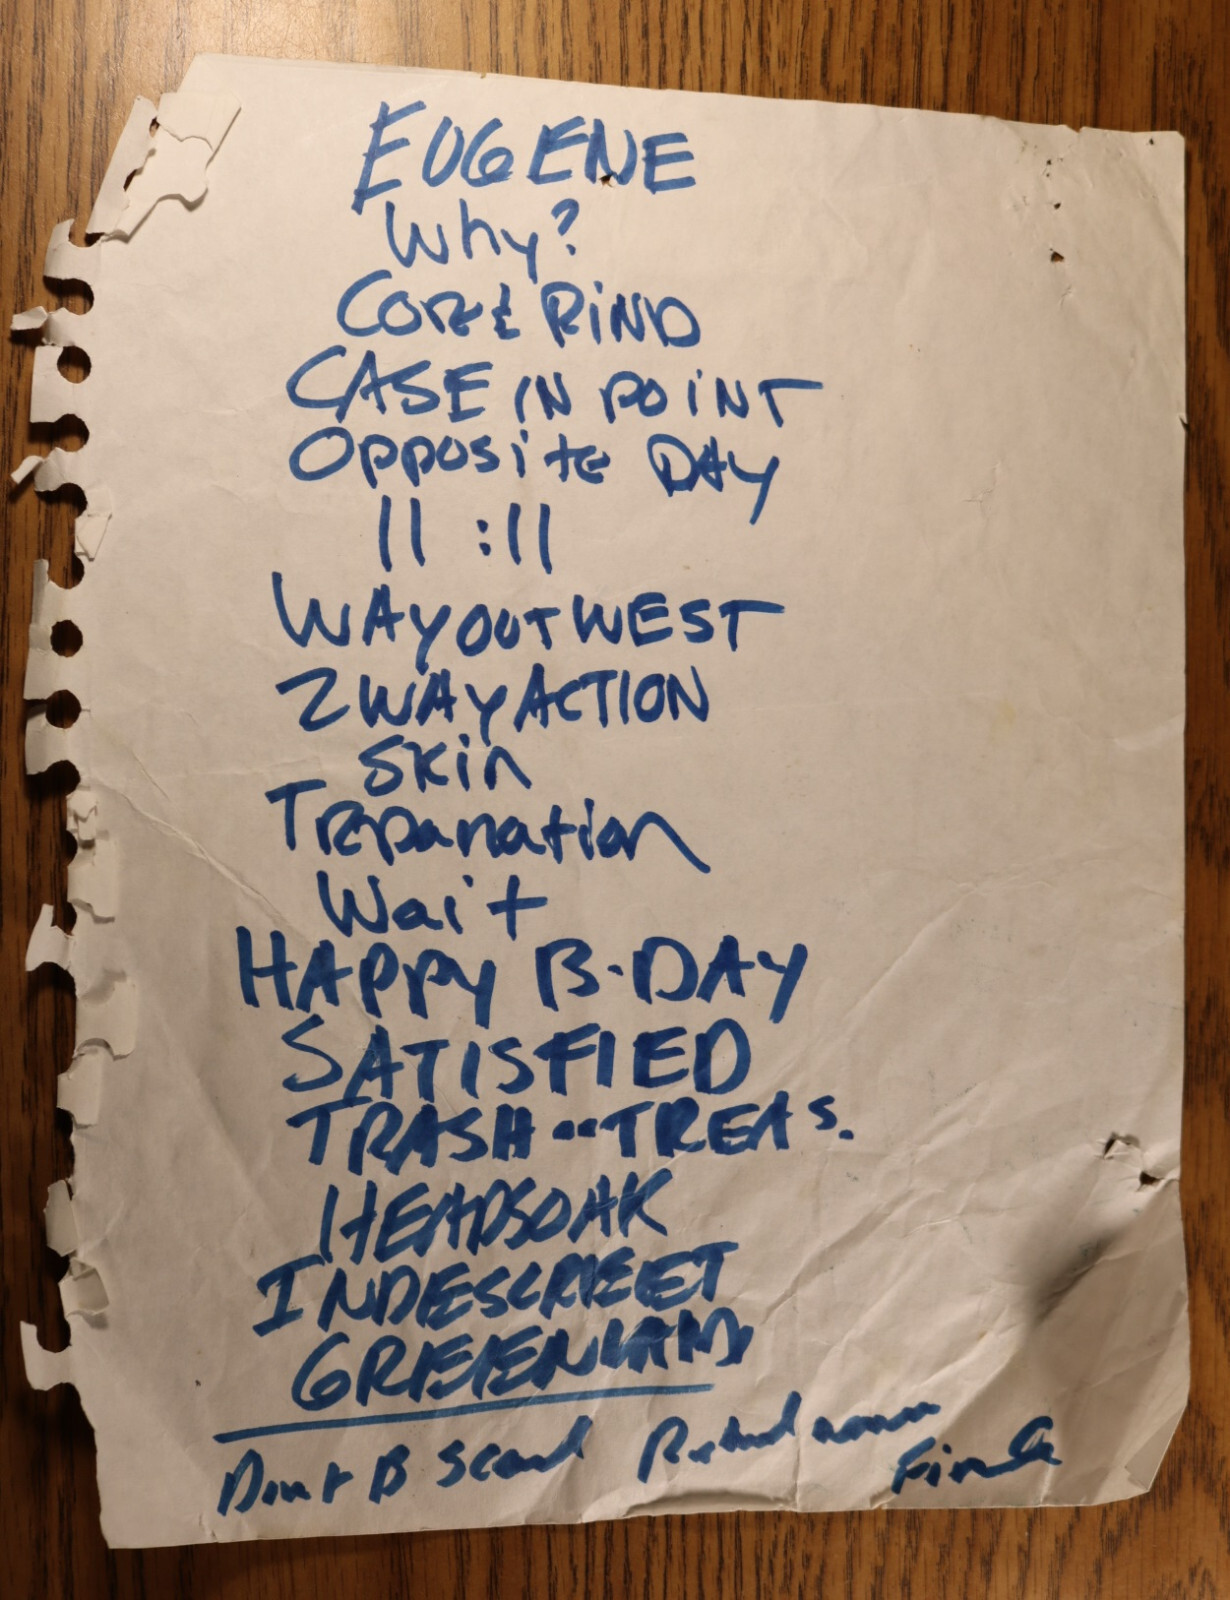 EUGENE
Why?
CORE RIND
CASE IN POINT
OPPOSITE DAY
11:11
WAY OUT WEST
2 WAY ACTION
Skin
Trepanation
Wait
HAPPY B-DAY
SATISFIED
TRASH--TREAS.
HEADSOAK
INDESCREET
GREENLAND
Dont B Scared
Finale